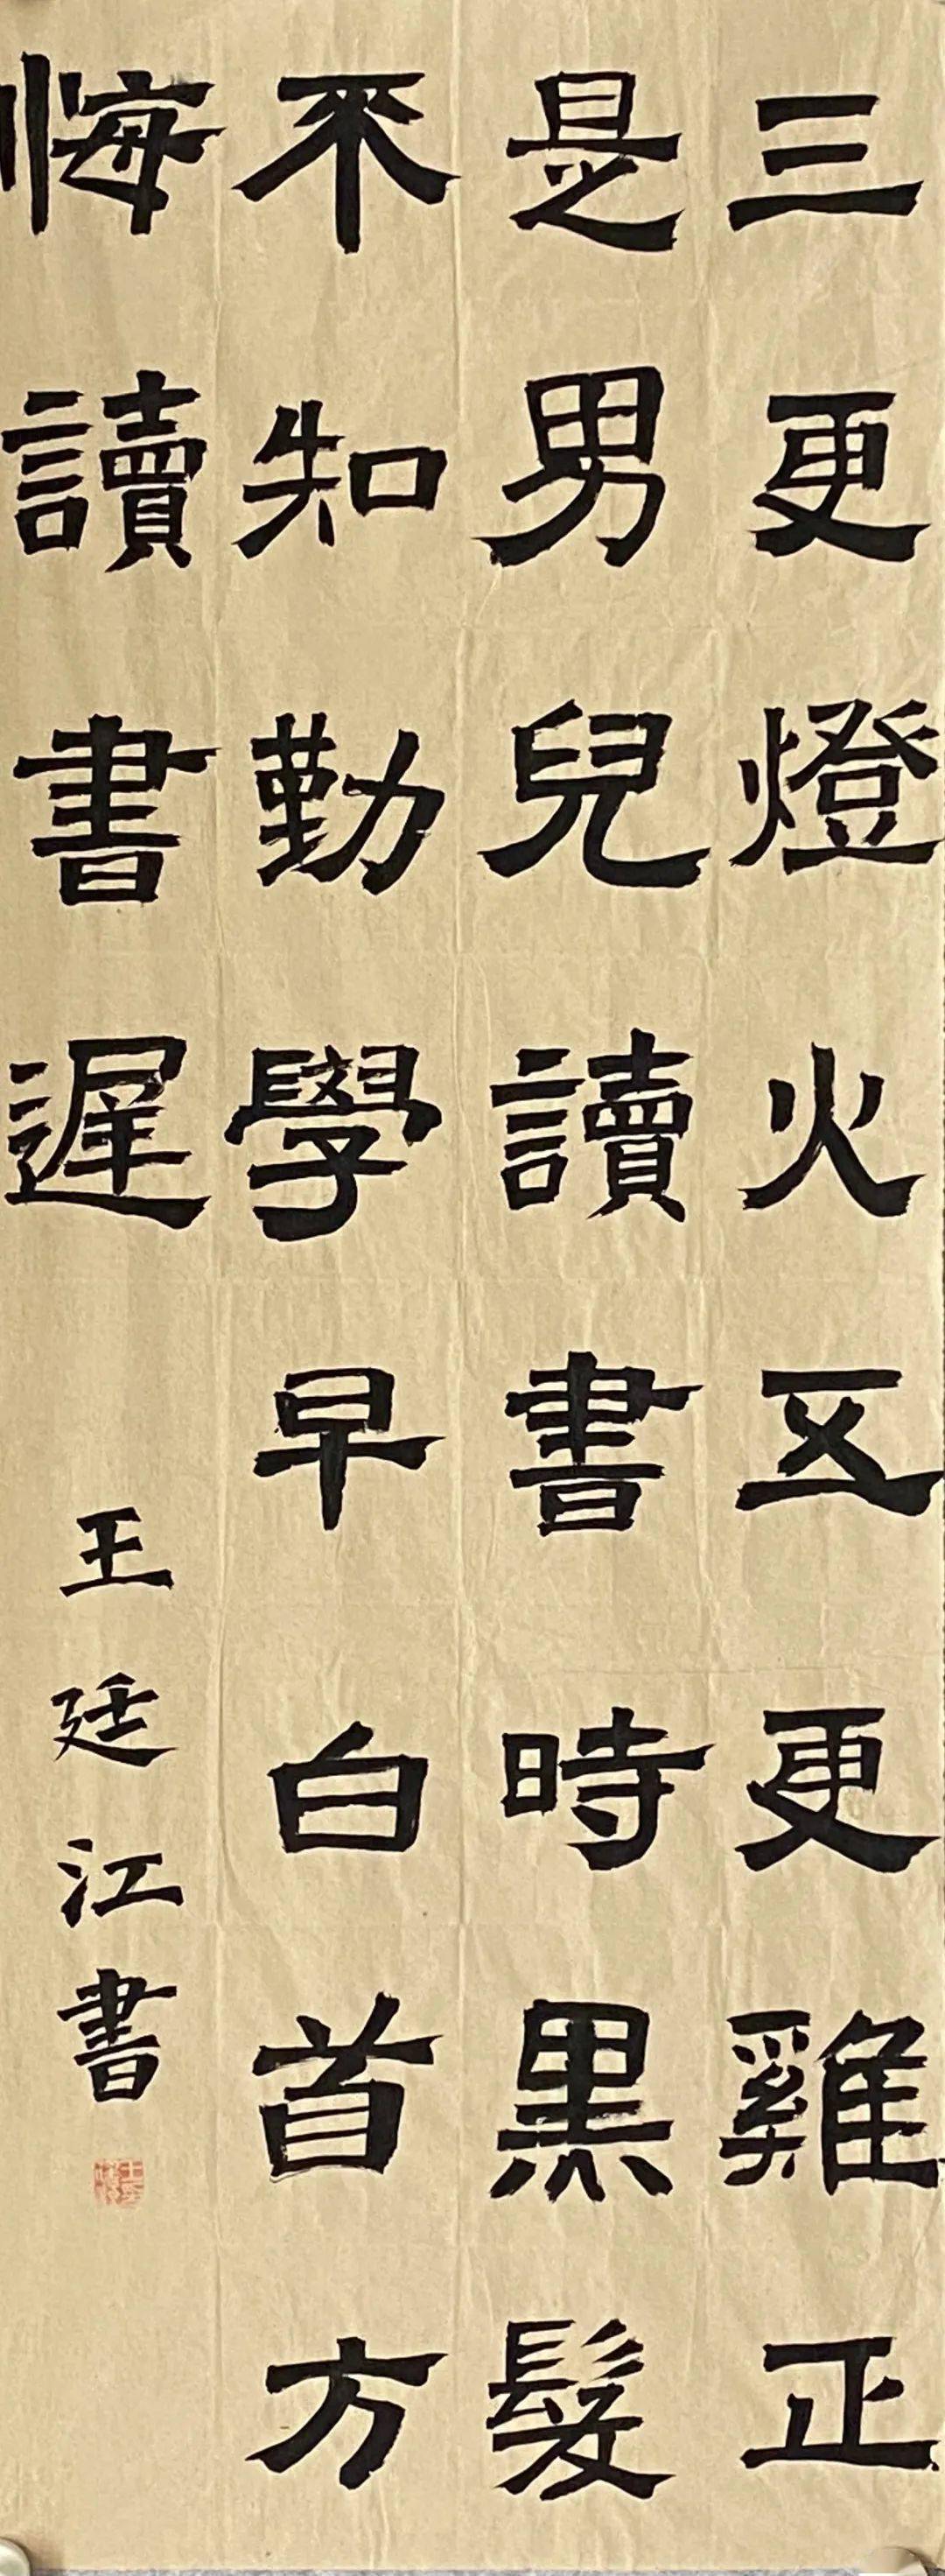 三更燈火五更雞正
是男兒讀書時黑髮
不知勤學早白首方
悔讀書遲
王廷江書